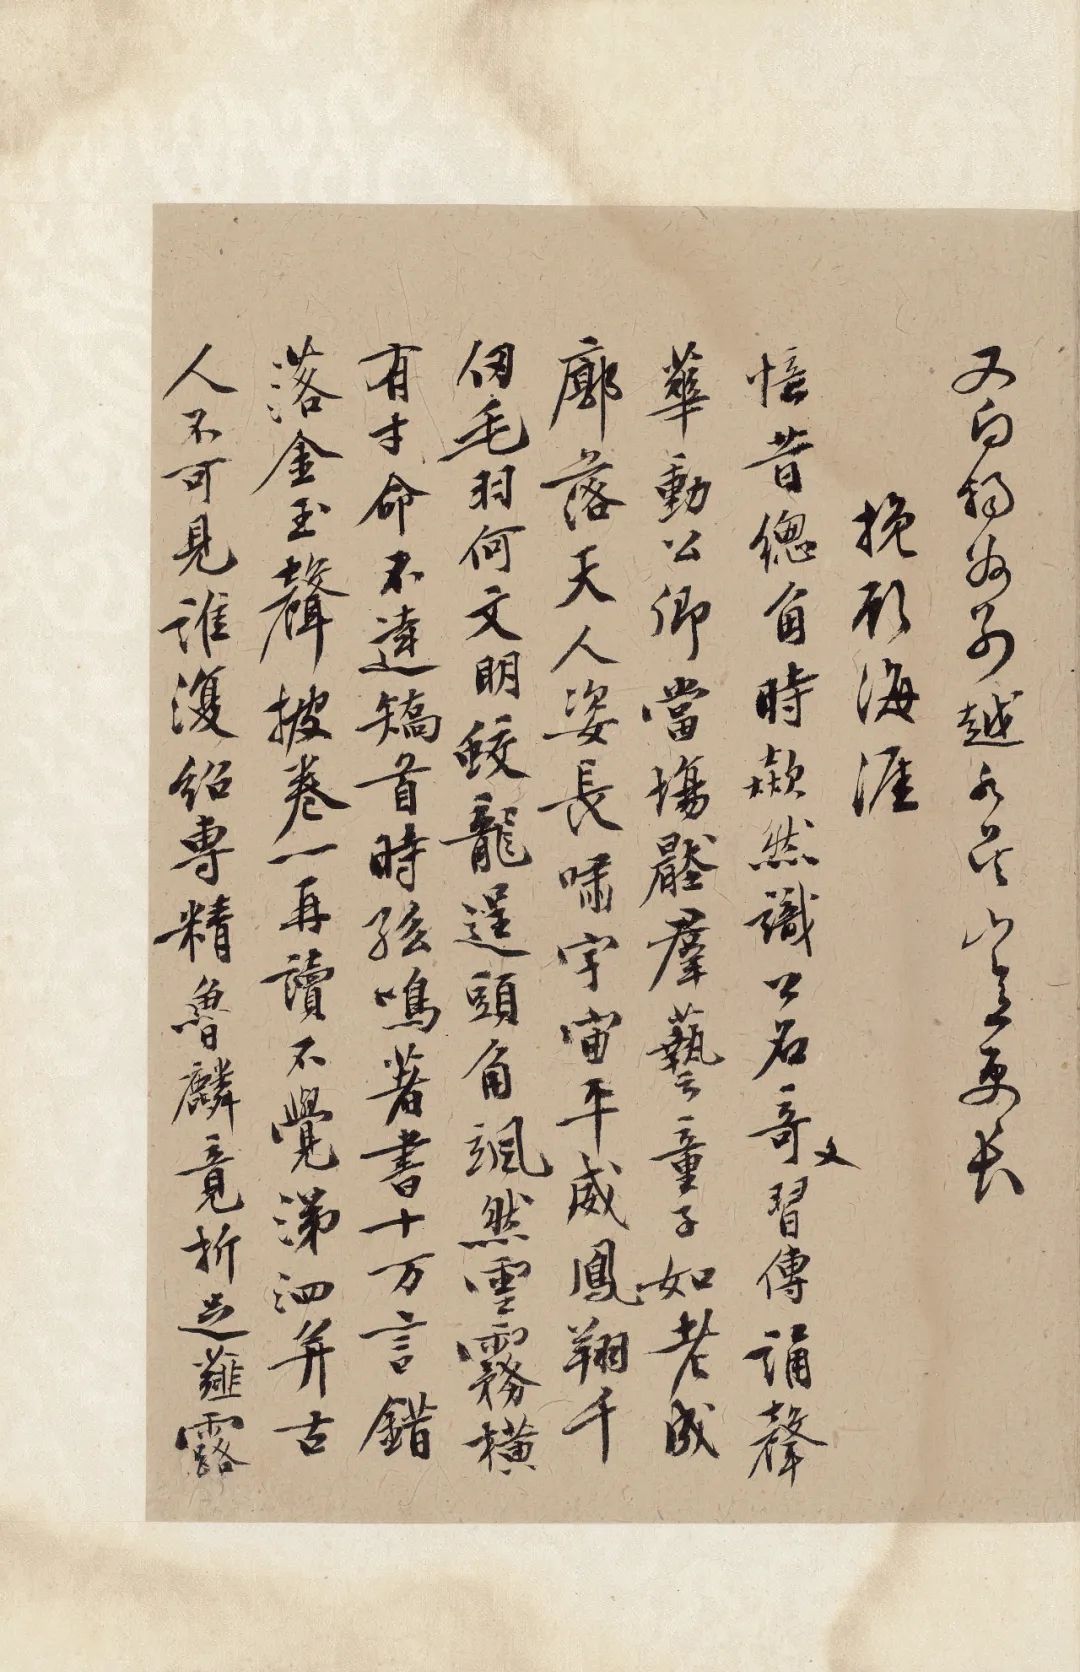 又向為別越水吴山意更长
挽顾海涯
憶昔總角時歘然識公名奇文習傳誦聲
華動公卿當場壓羣藝童子如老成
廓落天人姿長嘯宇宙平威鳳翔千
仞毛羽何文明蛟龍逞頭角颯然雲霧橫
有才命不達矯首時弦鳴著書十万言錯
落金玉聲披卷一再讀不覺涕泗并古
人不可見誰復紹專精魯麟竟折足薤露